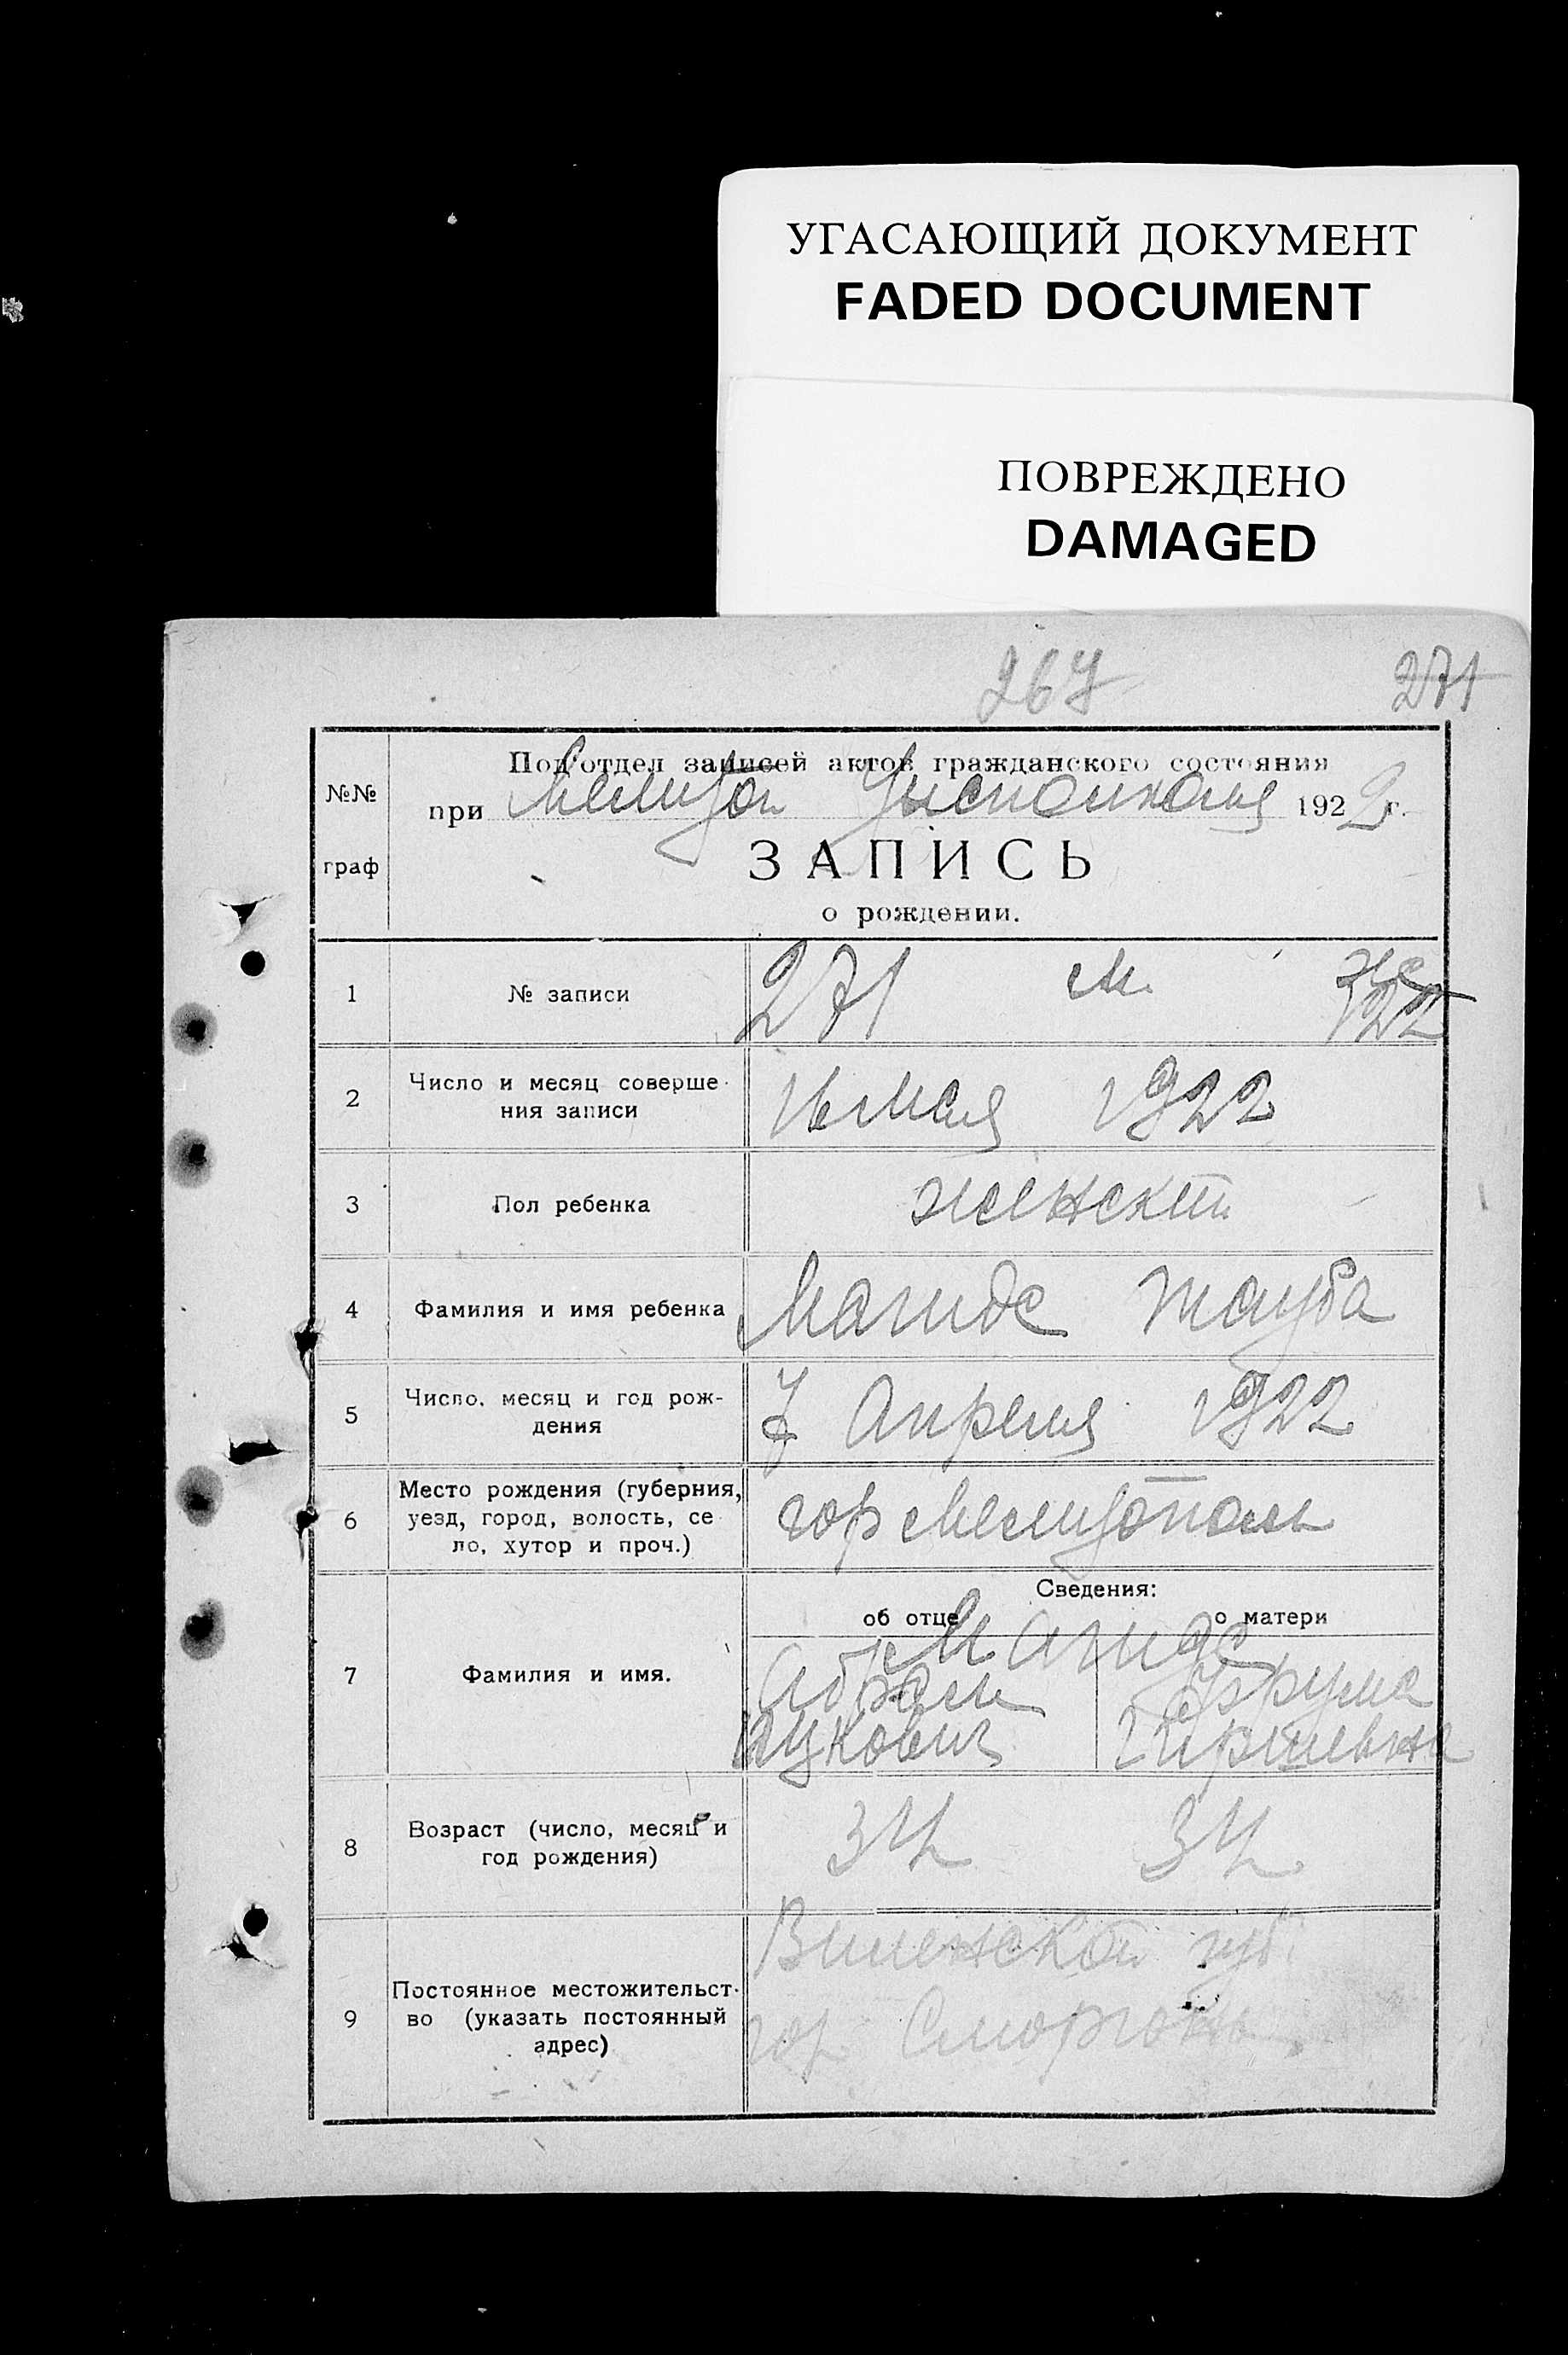 УГАСАЮЩИЙ ДОКУМЕНТ
FADED DOCUMENT
ПОВРЕЖДЕНО
DAMAGED
267 271
№№ граф
Подотдел записей актов гражданского состояния
при Мелитоп Уисполкома 1922 г.
ЗАПИСЬ
о рождении.
1 № записи 271 м. ж 122
2 Число и месяц соверше-
ния записи 16 мая 1922
3 Пол ребенка женский
4 Фамилия и имя ребенка Магидс Тауба
5 Число, месяц и год рож-
дения 7 Апреля 1922
6 Место рождения (губерния,
уезд, город, волость, се-
ло, хутор и проч.) гор Мелитополь
Сведения:
об отце о матери
7 Фамилия и имя. Магидс
Абрам Фрума
Ицкович Гиршевна
8 Возраст (число, месяц и
год рождения) 34 34
9 Постоянное местожительст-
во (указать постоянный
адрес) Виленской губ.
гор. Сморгонь